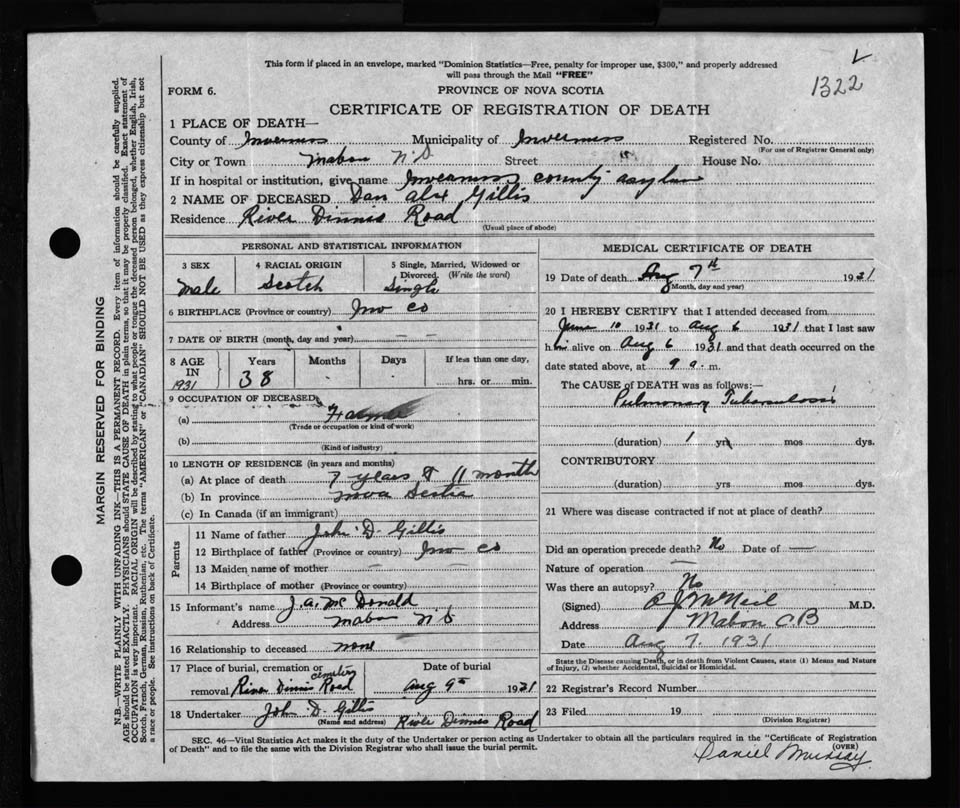 This form if placed in an envelope, marked "Dominion Statistics—Free, penalty for improper use, $300," and properly addressed
will pass through the Mail "FREE"
1322
FORM 6.
PROVINCE OF NOVA SCOTIA
CERTIFICATE OF REGISTRATION OF DEATH
1 PLACE OF DEATH—
County of Inverness Municipality of Inverness Registered No.
(For use of Registrar General only)
City or Town Mabou N S Street House No.
If in hospital or institution, give name Inverness county asylum
2 NAME OF DECEASED Dan Alex Gillis
Residence River Dinnis Road
(Usual place of abode)
PERSONAL AND STATISTICAL INFORMATION
3 SEX 4 RACIAL ORIGIN 5 Single, Married, Widowed or
Divorced. (Write the word)
Male Scotch Single
6 BIRTHPLACE (Province or country) Inv co
7 DATE OF BIRTH (month, day and year)
8 AGE Years Months Days If less than one day,
IN
1931 38 hrs. or min.
9 OCCUPATION OF DECEASED
(a) Farmer
(Trade or occupation or kind of work)
(b)
(Kind of industry)
10 LENGTH OF RESIDENCE (in years and months)
(a) At place of death 7 years & 11 month
(b) In province Nova Scotia
(c) In Canada (if an immigrant)
Parents
11 Name of father John D Gillis
12 Birthplace of father (Province or country) Inv co
13 Maiden name of mother —
14 Birthplace of mother (Province or country)
15 Informant's name J. A. McDonald
Address Mabou N S
16 Relationship to deceased none
17 Place of burial, cremation or Date of burial
cemetery
removal River Dinnis Road Aug 9th 1931
18 Undertaker John D Gillis River Dinnis Road
(Name and address)
MEDICAL CERTIFICATE OF DEATH
19 Date of death Aug 7th 1931
(Month, day and year)
20 I HEREBY CERTIFY that I attended deceased from
June 10 1931 to Aug 6 1931 that I last saw
him alive on Aug 6 1931 and that death occurred on the
date stated above, at 9 a. m.
The CAUSE OF DEATH was as follows:—
Pulmonary Tuberculosis
(duration) 1 yrs mos dys.
CONTRIBUTORY
(duration) yrs mos dys.
21 Where was disease contracted if not at place of death?
Did an operation precede death? No Date of —
Nature of operation —
Was there an autopsy? No
(Signed) McNeil M.D.
Address Mabou C B
Date Aug 7. 1931
State the Disease causing Death, or in death from Violent Causes, state (1) Means and Nature
of Injury, (2) whether Accidental, Suicidal or Homicidal.
22 Registrar's Record Number
23 Filed 19
(Division Registrar)
SEC. 46—Vital Statistics Act makes it the duty of the Undertaker or person acting as Undertaker to obtain all the particulars required in the "Certificate of Registration
of Death" and to file the same with the Division Registrar who shall issue the burial permit.
(OVER)
Daniel Murray
MARGIN RESERVED FOR BINDING
N.B.—WRITE PLAINLY WITH UNFADING INK—THIS IS A PERMANENT RECORD. Every item of information should be carefully supplied.
AGE should be stated EXACTLY. PHYSICIANS should STATE CAUSE OF DEATH in plain terms, so that it may be properly classified. Exact statement of
OCCUPATION is very important. RACIAL ORIGIN will be described by stating to what people or tongue the deceased person belonged, whether English, Irish,
Scotch, French, German, Russian, Ruthenian, etc. The terms "AMERICAN" or "CANADIAN" SHOULD NOT BE USED as they express citizenship but not
a race or people. See instructions on back of Certificate.